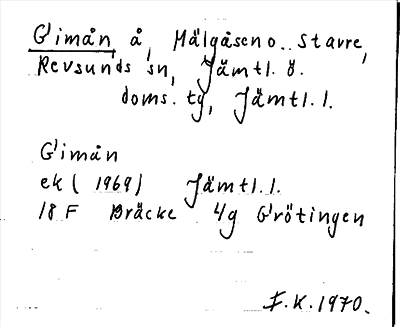 Gimån å, Mälgåsen o. Stavre,
Revsunds sn, Jämtl. ö.
doms. tg, Jämtl. l.
Gimån
ek (1969) Jämtl. l.
18 F Bräcke 4g Grötingen
F.K. 1970.